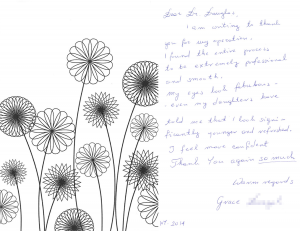 Dear Dr.
I am writing to thank
you for my operation.
I found the entire process
to be extremely professional
and smooth.
My eyes look fabulous.
Even my daughters have
told me that I look signi-
ficantly younger and refreshed.
I feel more confident
Thank You again so much
Warm regards
Grace
2014